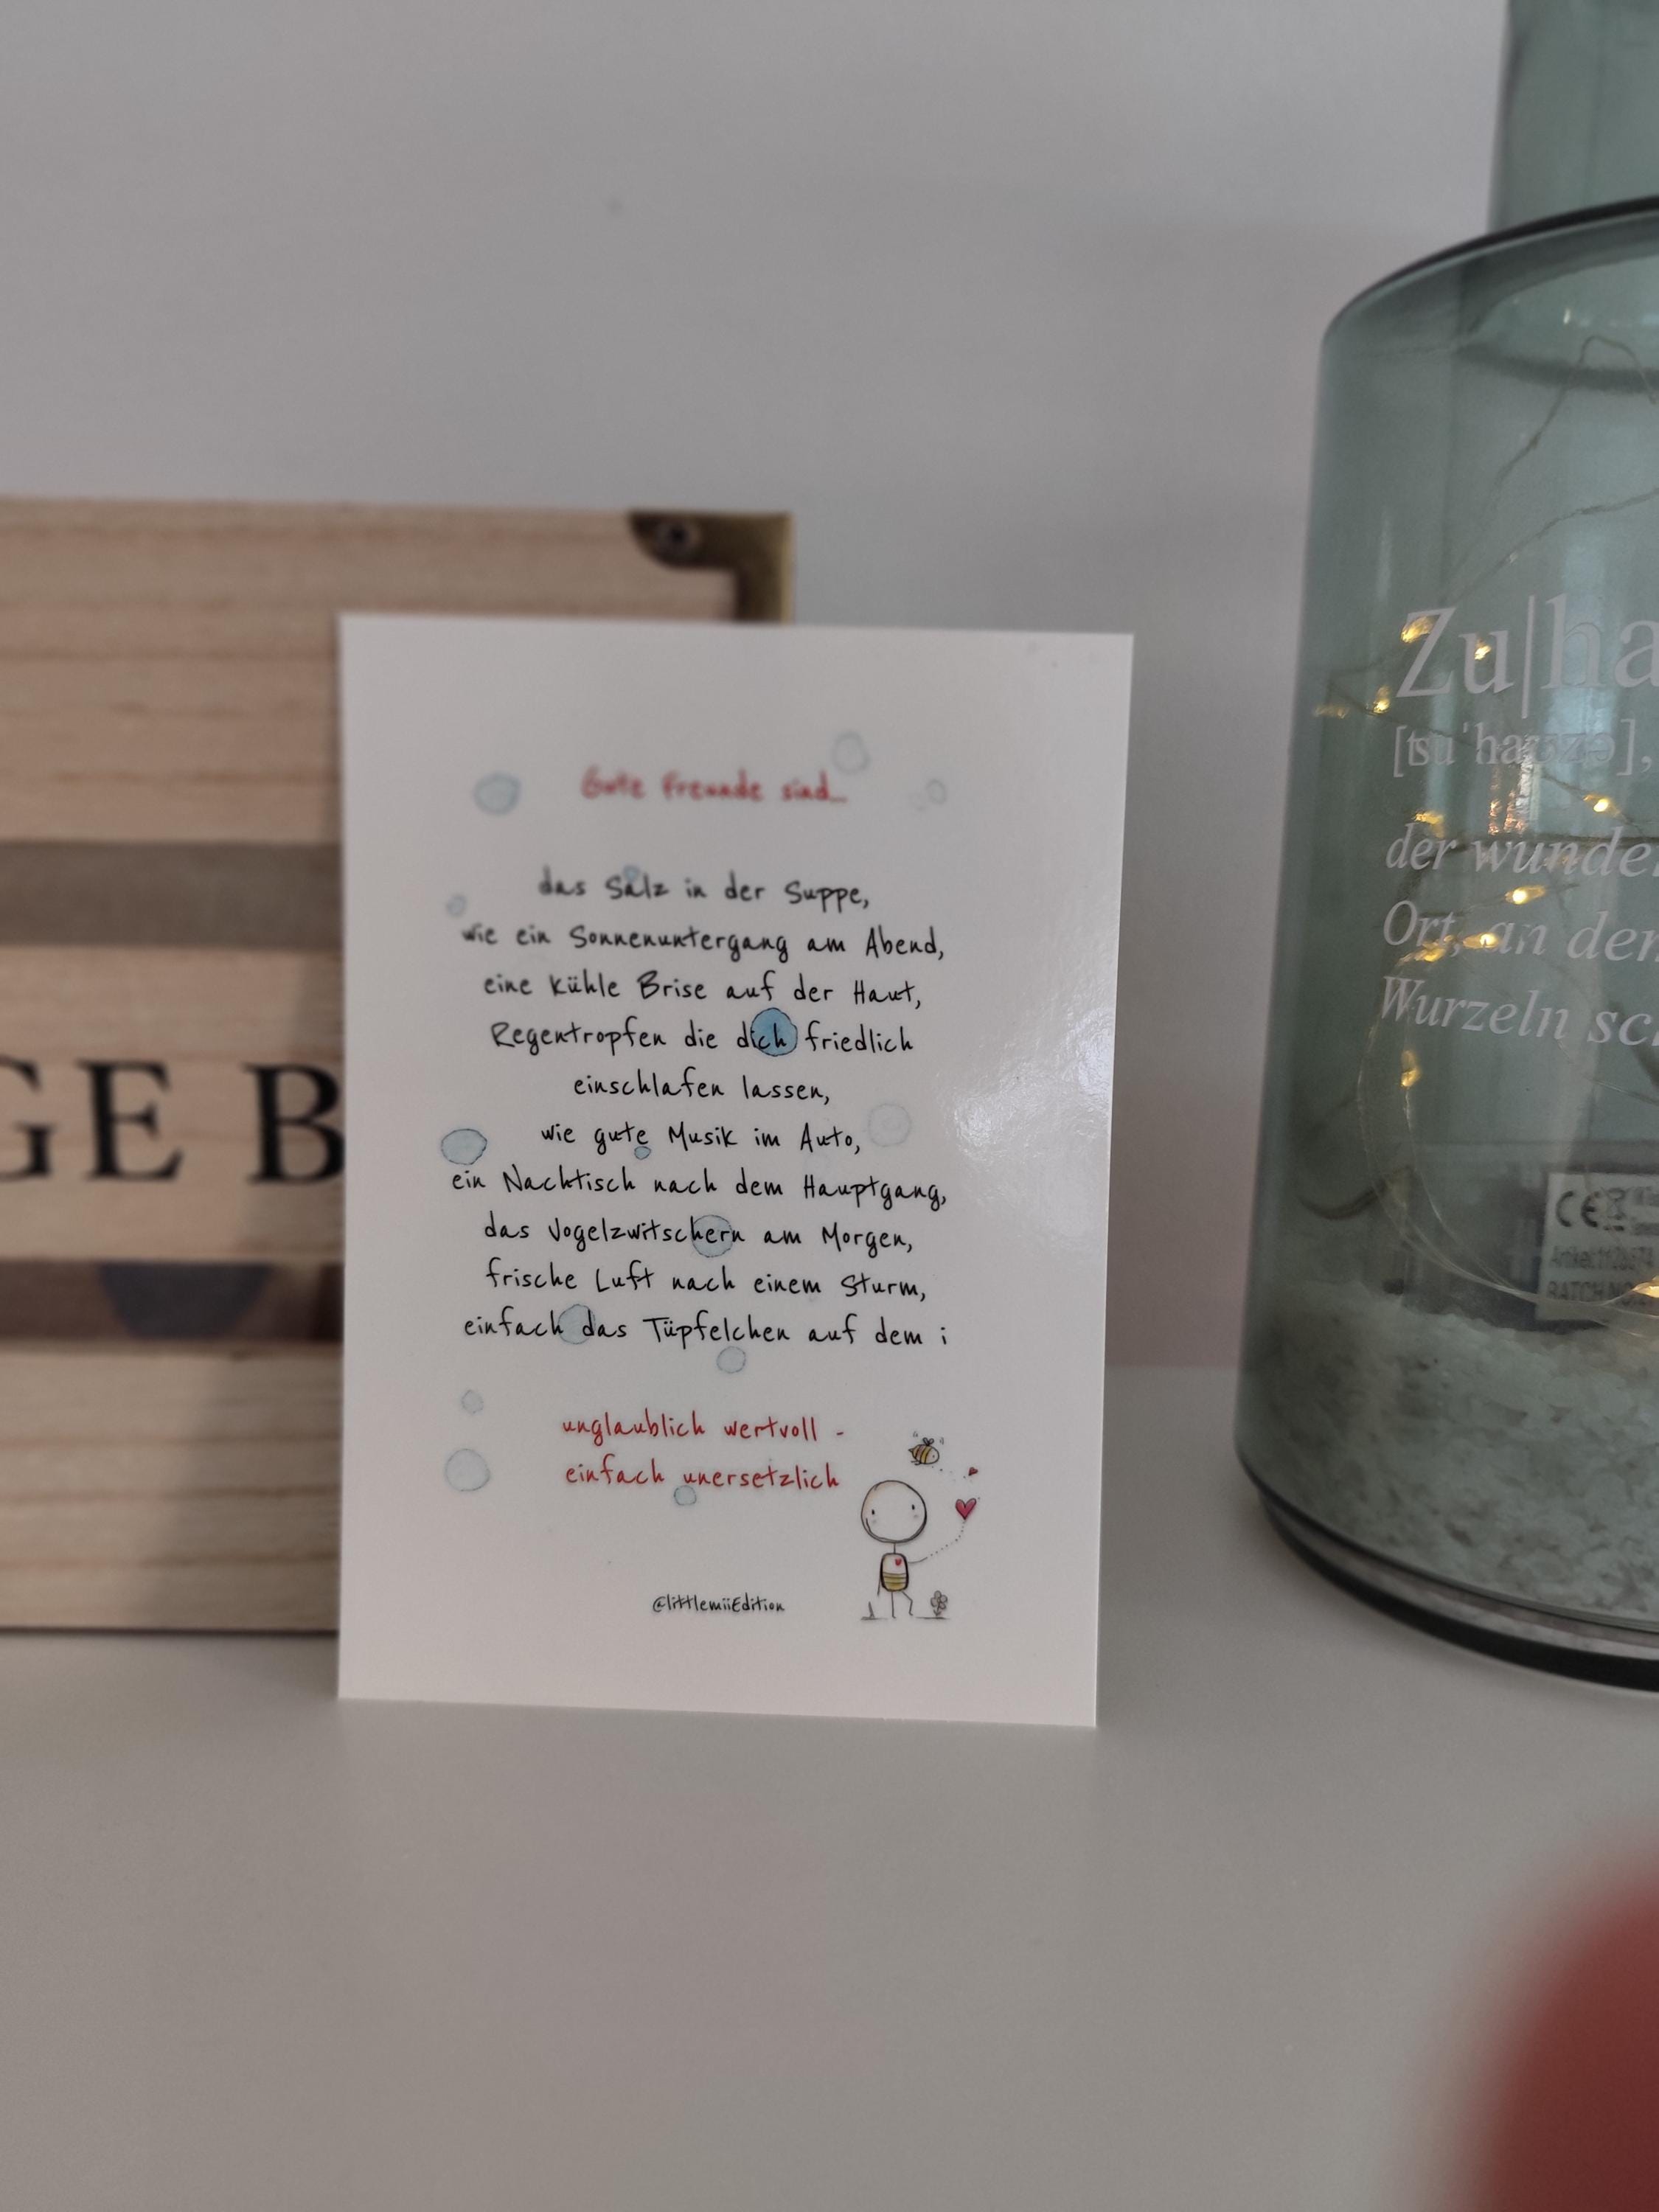 GE B
Gute Freunde sind...
das Salz in der Suppe,
wie ein Sonnenuntergang am Abend,
eine kühle Brise auf der Haut,
Regentropfen die dich friedlich
einschlafen lassen,
wie gute Musik im Auto,
ein Nachtisch nach dem Hauptgang,
das Vogelzwitschern am Morgen,
frische Luft nach einem Sturm,
einfach das Tüpfelchen auf dem i
unglaublich wertvoll -
einfach unersetzlich
@littlemiiEdition
Zu|ha
[tsuˈhaʊzə],
der wunde
Ort, an de
Wurzeln sc
CE